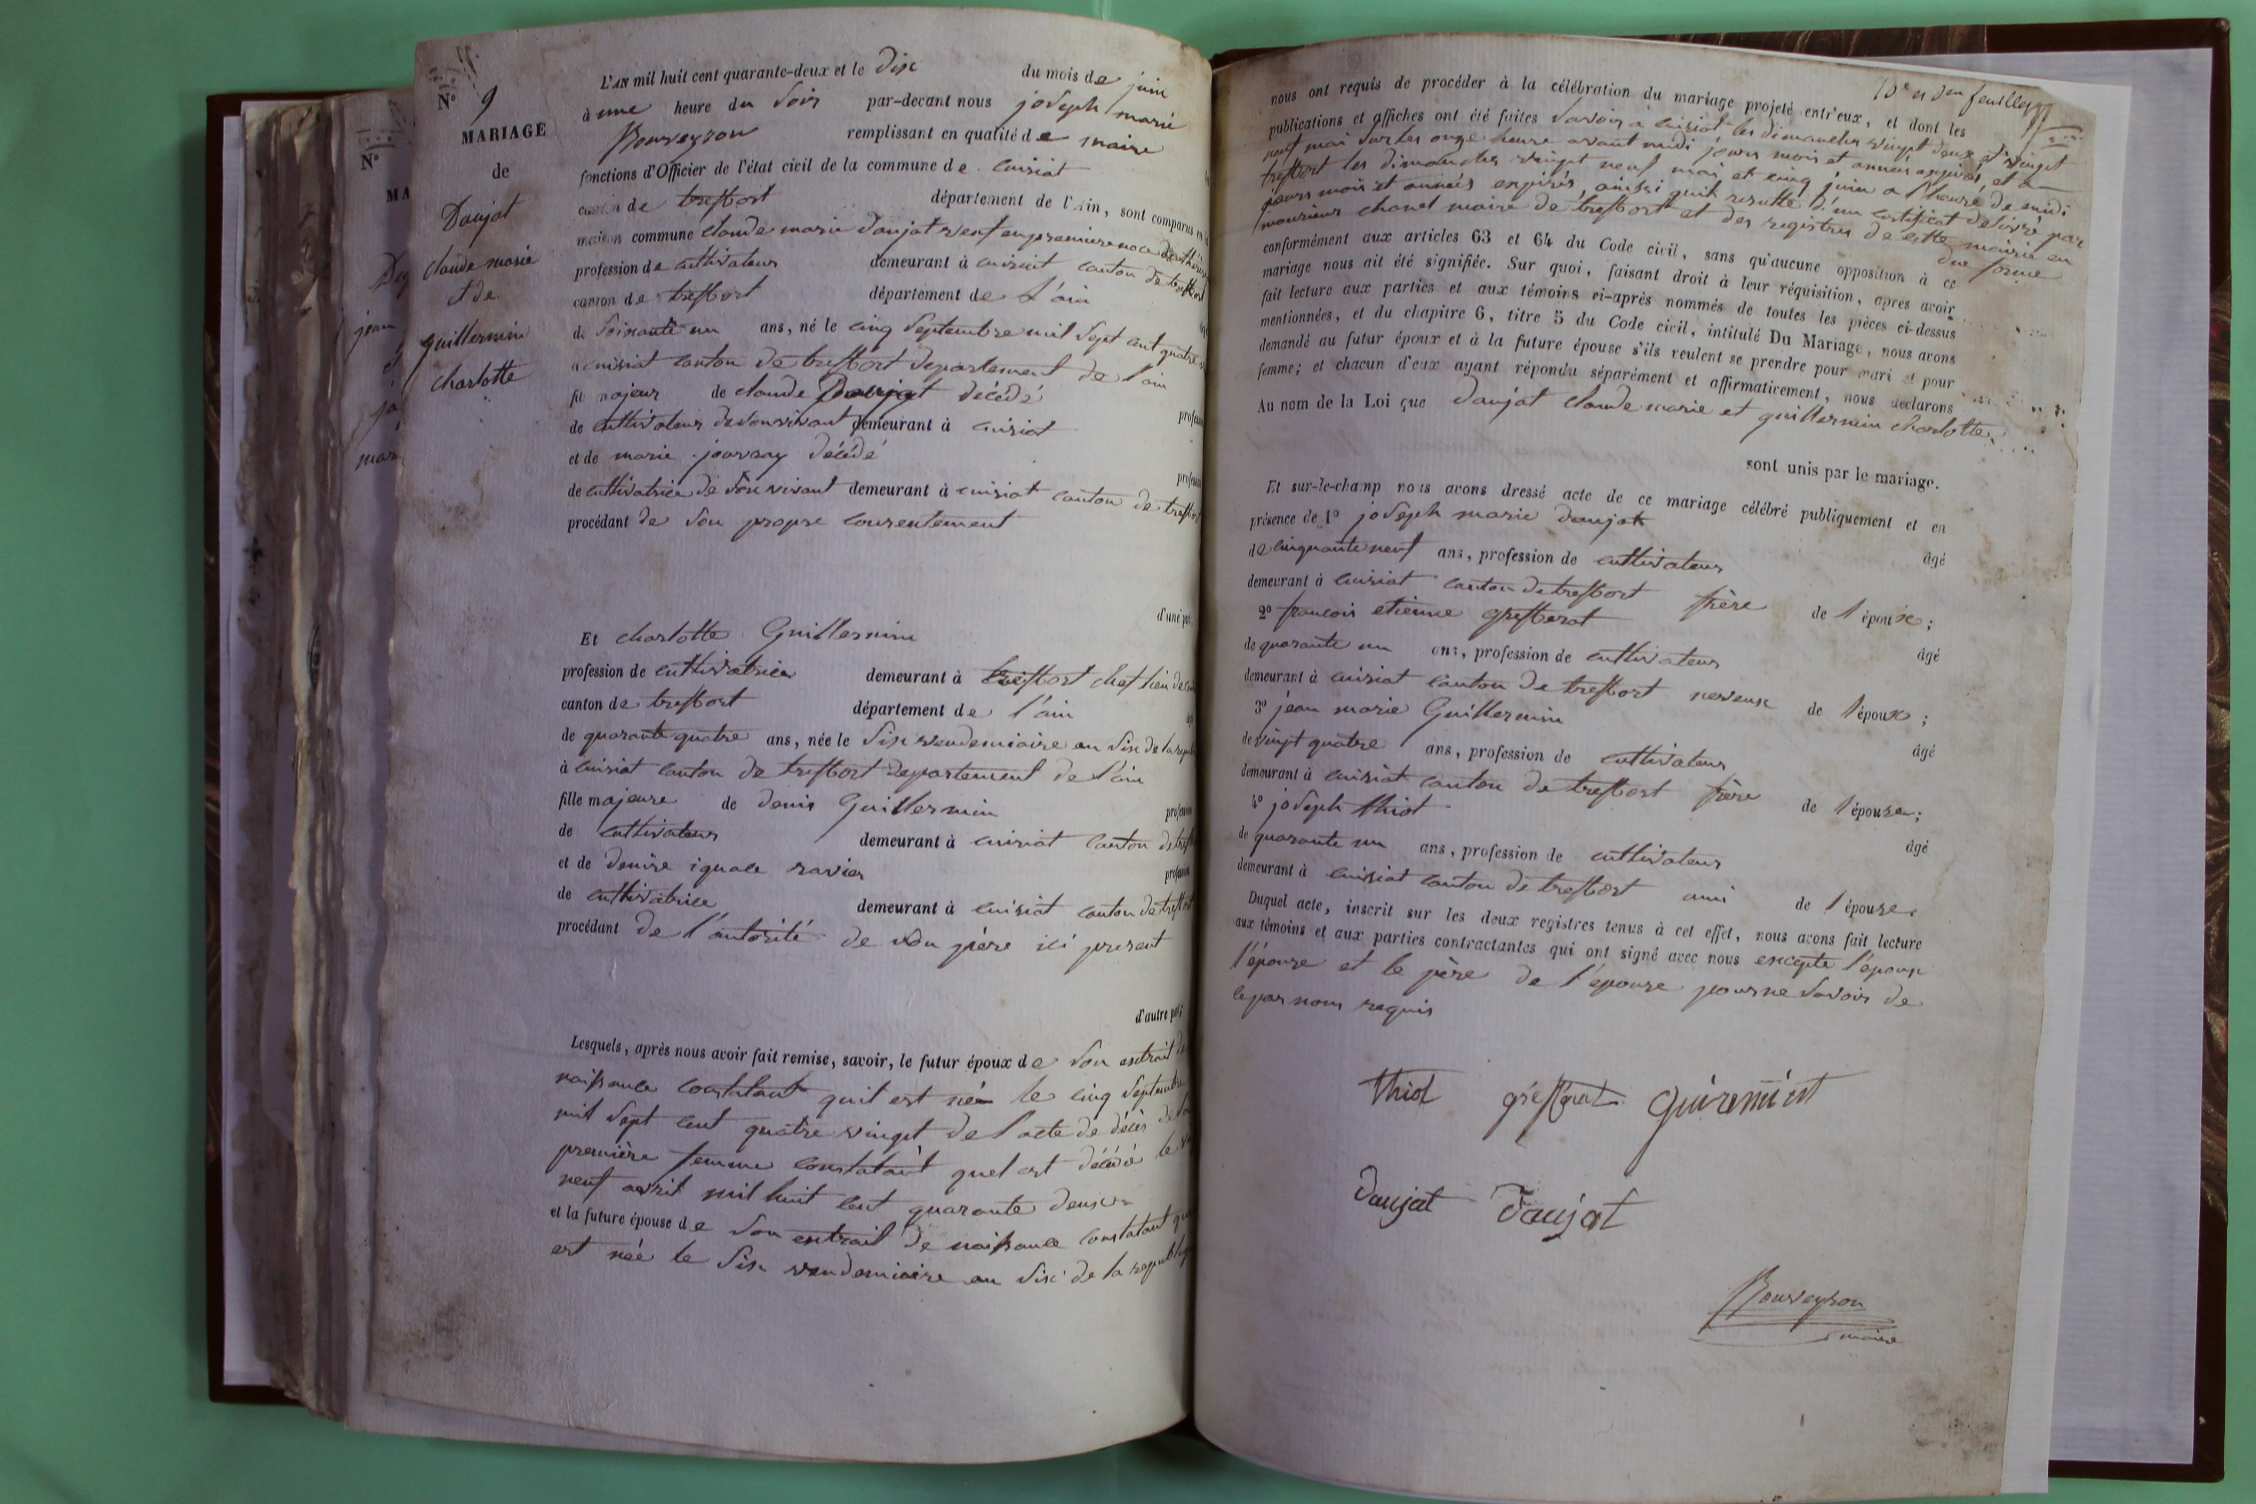 N° 9
MARIAGE
de
Daujat
claude marie
et de
guillermin
charlotte
N°
MA
jean
L'AN mil huit cent quarante-deux et le dix du mois de juin
à une heure du soir par-devant nous joseph marie
Bouveyron remplissant en qualité de maire
fonctions d'Officier de l'état civil de la commune de cuisiat
canton de treffort département de l'Ain, sont comparus en la
maison commune claude marie daujat veuf en premiere noce de
profession de cultivateur demeurant à cuisiat canton de treffort
canton de treffort département de l'ain
de soixante un ans, né le cinq septembre mil sept cent quatre
a cuisiat canton de treffort departement de l'ain
fils majeur de claude Daujat décédé
de cultivateur de son vivant demeurant à cuisiat profession
et de marie jouvray décédé
de cultivatrice de son vivant demeurant à cuisiat canton de treffort
procédant de son propre consentement
d'une part,
Et charlotte Guillermin
profession de cultivatrice demeurant à treffort chef lieu de
canton de treffort département de l'ain
de quarante quatre ans, née le six vendemiaire an six de la repub
à cuisiat canton de treffort departement de l'ain
fille majeure de denis Guillermin profession
de cultivateur demeurant à cuisiat canton de treffort
et de denise ignace ravier profession
de cultivatrice demeurant à cuisiat canton de treffort
procédant de l'autorité de son père ici present
d'autre part;
Lesquels, après nous avoir fait remise, savoir, le futur époux de son extrait de
naissance constatant quil est né le cinq septembre
mil sept cent quatre vingt de l'acte de décès de sa
première femme constatant quel est décédé le
neuf avril mil huit cent quarante deux
et la future épouse de son extrait de naissance constatant que
est née le six vendemiaire an six de la republique
nous ont requis de procéder à la célébration du mariage projeté entr'eux, et dont les
publications et affiches ont été faites savoir a cuisiat les dimanches vingt deux et vingt
neuf mai sur les onze heure avant midi jours mois et année expirés, et a
treffort les dimanches vingt neuf mai et cinq juin a l'heure de midi
jours mois et années expirés, ainsi quil resulte d'un certificat delivré par
monsieur chanel maire de treffort et des registres de cette mairie en
due forme
conformément aux articles 63 et 64 du Code civil, sans qu'aucune opposition à ce
mariage nous ait été signifiée. Sur quoi, faisant droit à leur réquisition, après avoir
fait lecture aux parties et aux témoins ci-après nommés de toutes les pièces ci-dessus
mentionnées, et du chapitre 6, titre 5 du Code civil, intitulé Du Mariage, nous avons
demandé au futur époux et à la future épouse s'ils veulent se prendre pour mari et pour
femme; et chacun d'eux ayant répondu séparément et affirmativement, nous déclarons
Au nom de la Loi que daujat claude marie et guillermin charlotte
sont unis par le mariage.
Et sur-le-champ nous avons dressé acte de ce mariage célébré publiquement et en
présence de 1° joseph marie daujat âgé
de cinquante neuf ans, profession de cultivateur
demeurant à cuisiat canton de treffort frère de l'époux;
2° francois etienne grefferat âgé
de quarante un ans, profession de cultivateur
demeurant à cuisiat canton de treffort neveux de l'époux;
3° jean marie Guillermin âgé
de vingt quatre ans, profession de cultivateur
demeurant à cuisiat canton de treffort frère de l'épouse;
4° joseph thiot âgé
de quarante un ans, profession de cultivateur
demeurant à cuisiat canton de treffort ami de l'épouse
Duquel acte, inscrit sur les deux registres tenus à cet effet, nous avons fait lecture
aux témoins et aux parties contractantes qui ont signé avec nous excepté l'epoux
l'épouse et le père de l'épouse pour ne savoir de
ce par nous requis
thiot greffierat
daujat Daujat
Bouveyron
maire